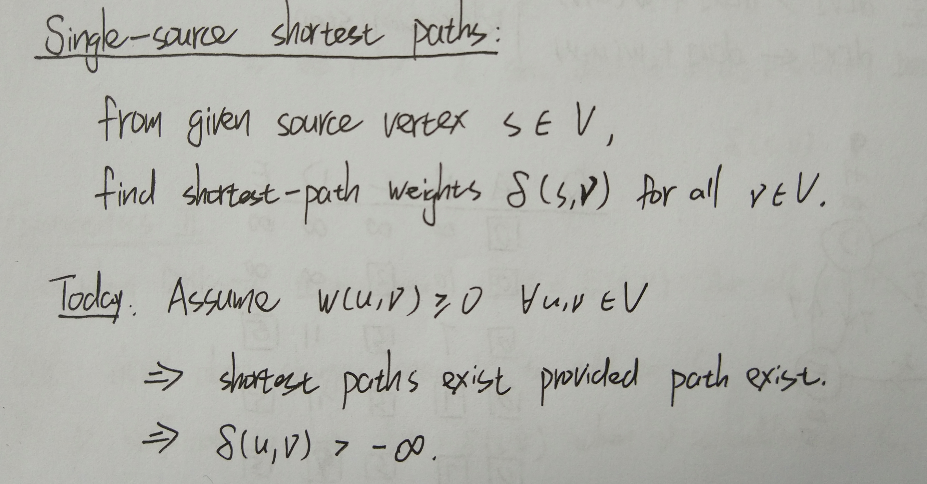 Single-source shortest paths:
from given source vertex s ∈ V,
find shortest-path weights δ(s,v) for all v ∈ V.
Today. Assume w(u,v) ≥ 0 ∀u,v ∈ V
⇒ shortest paths exist provided path exist.
⇒ δ(u,v) > -∞.